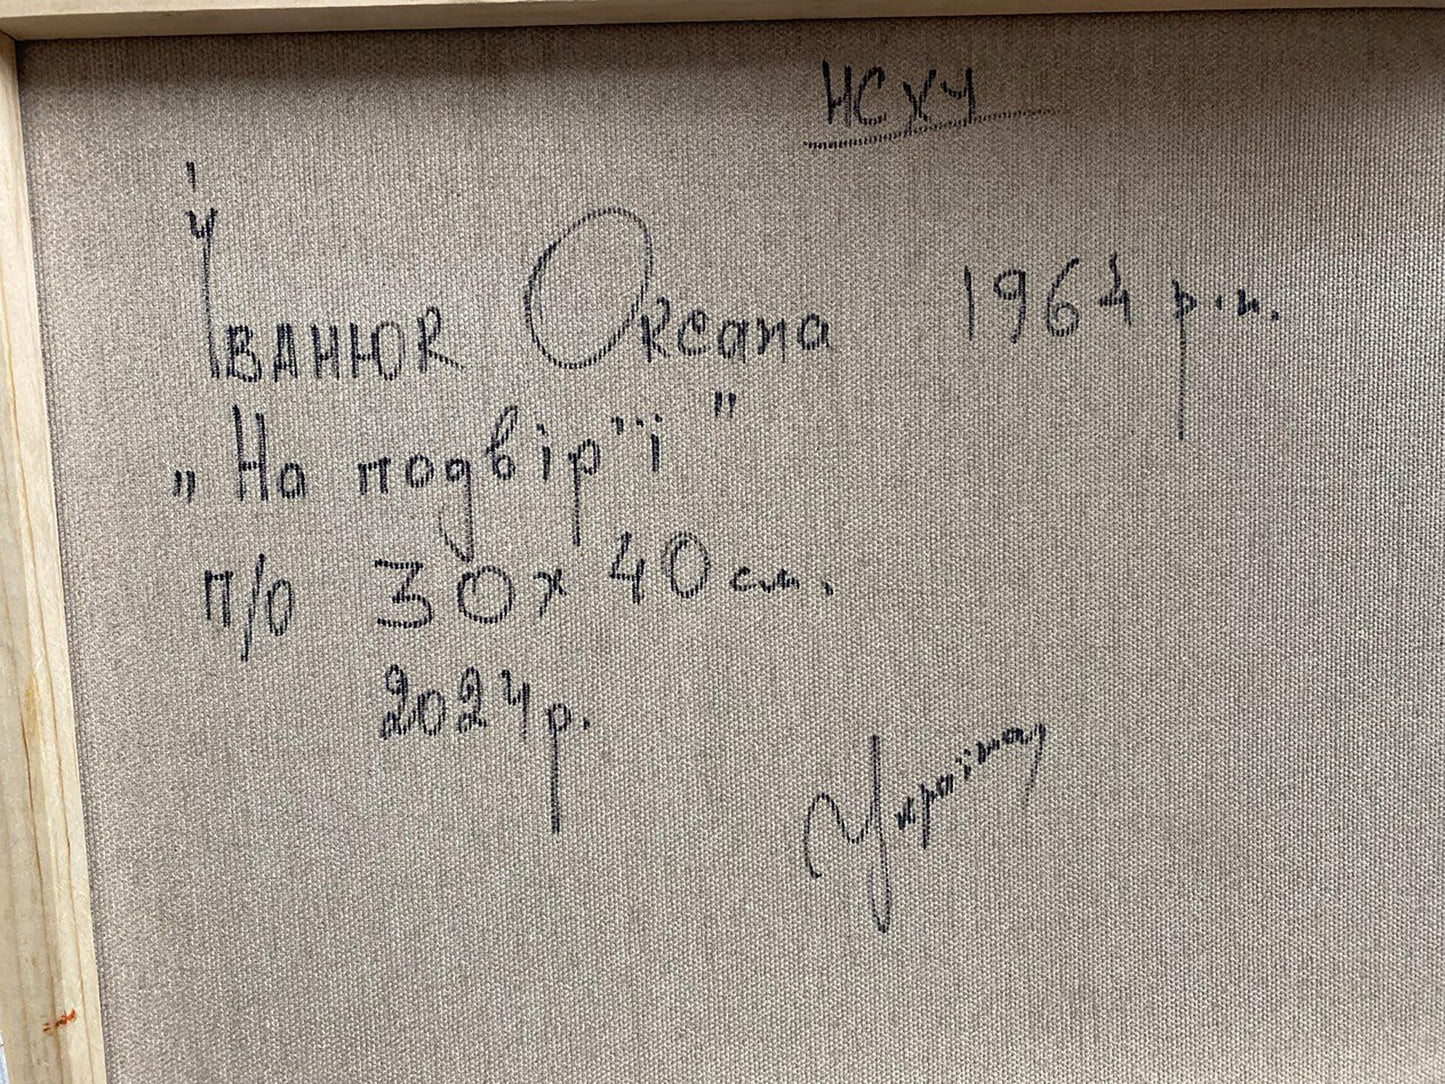 НСХУ
Іванюк Оксана 1964 р.н.
„На подвір'ї"
п/о 30х40 см.
2024р.
Україна,